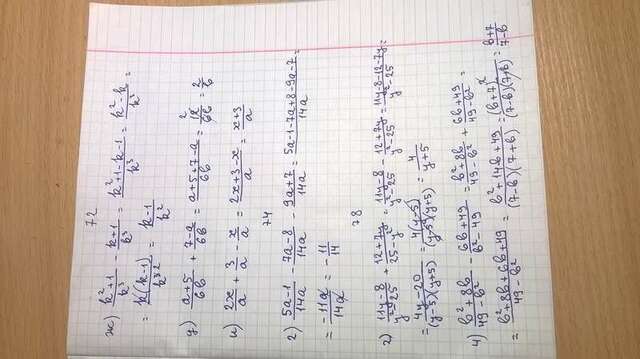 72
ж) (k²+1)/k³ - (k+1)/k³ = (k²+1-k-1)/k³ = (k²-k)/k³ =
= k(k-1)/k³² = (k-1)/k²
у) (a+5)/6b + (7-a)/6b = (a+5+7-a)/6b = 12²/6b = 2/b
и) (2x+3)/a - x/a = (2x+3-x)/a = (x+3)/a
74
г) (5a-1)/14a - (7a-8)/14a - (9a+7)/14a = (5a-1-7a+8-9a-7)/14a =
= -11a/14a = -11/14
78
г) (11y-8)/(y²-25) + (12+7y)/(25-y²) = (11y-8)/(y²-25) - (12+7y)/(y²-25) = (11y-8-12-7y)/(y²-25) =
= (4y-20)/((y-5)(y+5)) = 4(y-5)/((y-5)(y+5)) = 4/(y+5)
ч) (b²+8b)/(49-b²) - (6b+49)/(b²-49) = (b²+8b)/(49-b²) + (6b+49)/(49-b²) =
= (b²+8b+6b+49)/(49-b²) = (b²+14b+49)/((7-b)(7+b)) = (b+7)²/((7-b)(7+b)) = (b+7)/(7-b)